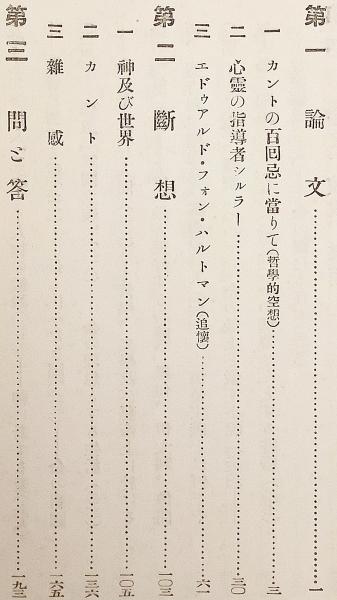 第一 論文……………一
一 カントの百囘忌に當りて(哲學的空想)……………三
二 心靈の指導者シルラー……………三〇
三 エドゥアルド・フォン・ハルトマン(追懷)……………六一
第二 斷想……………一〇三
一 神及び世界……………一〇五
二 カント……………一三六
三 雜感……………一六五
第三 問と答……………一九三